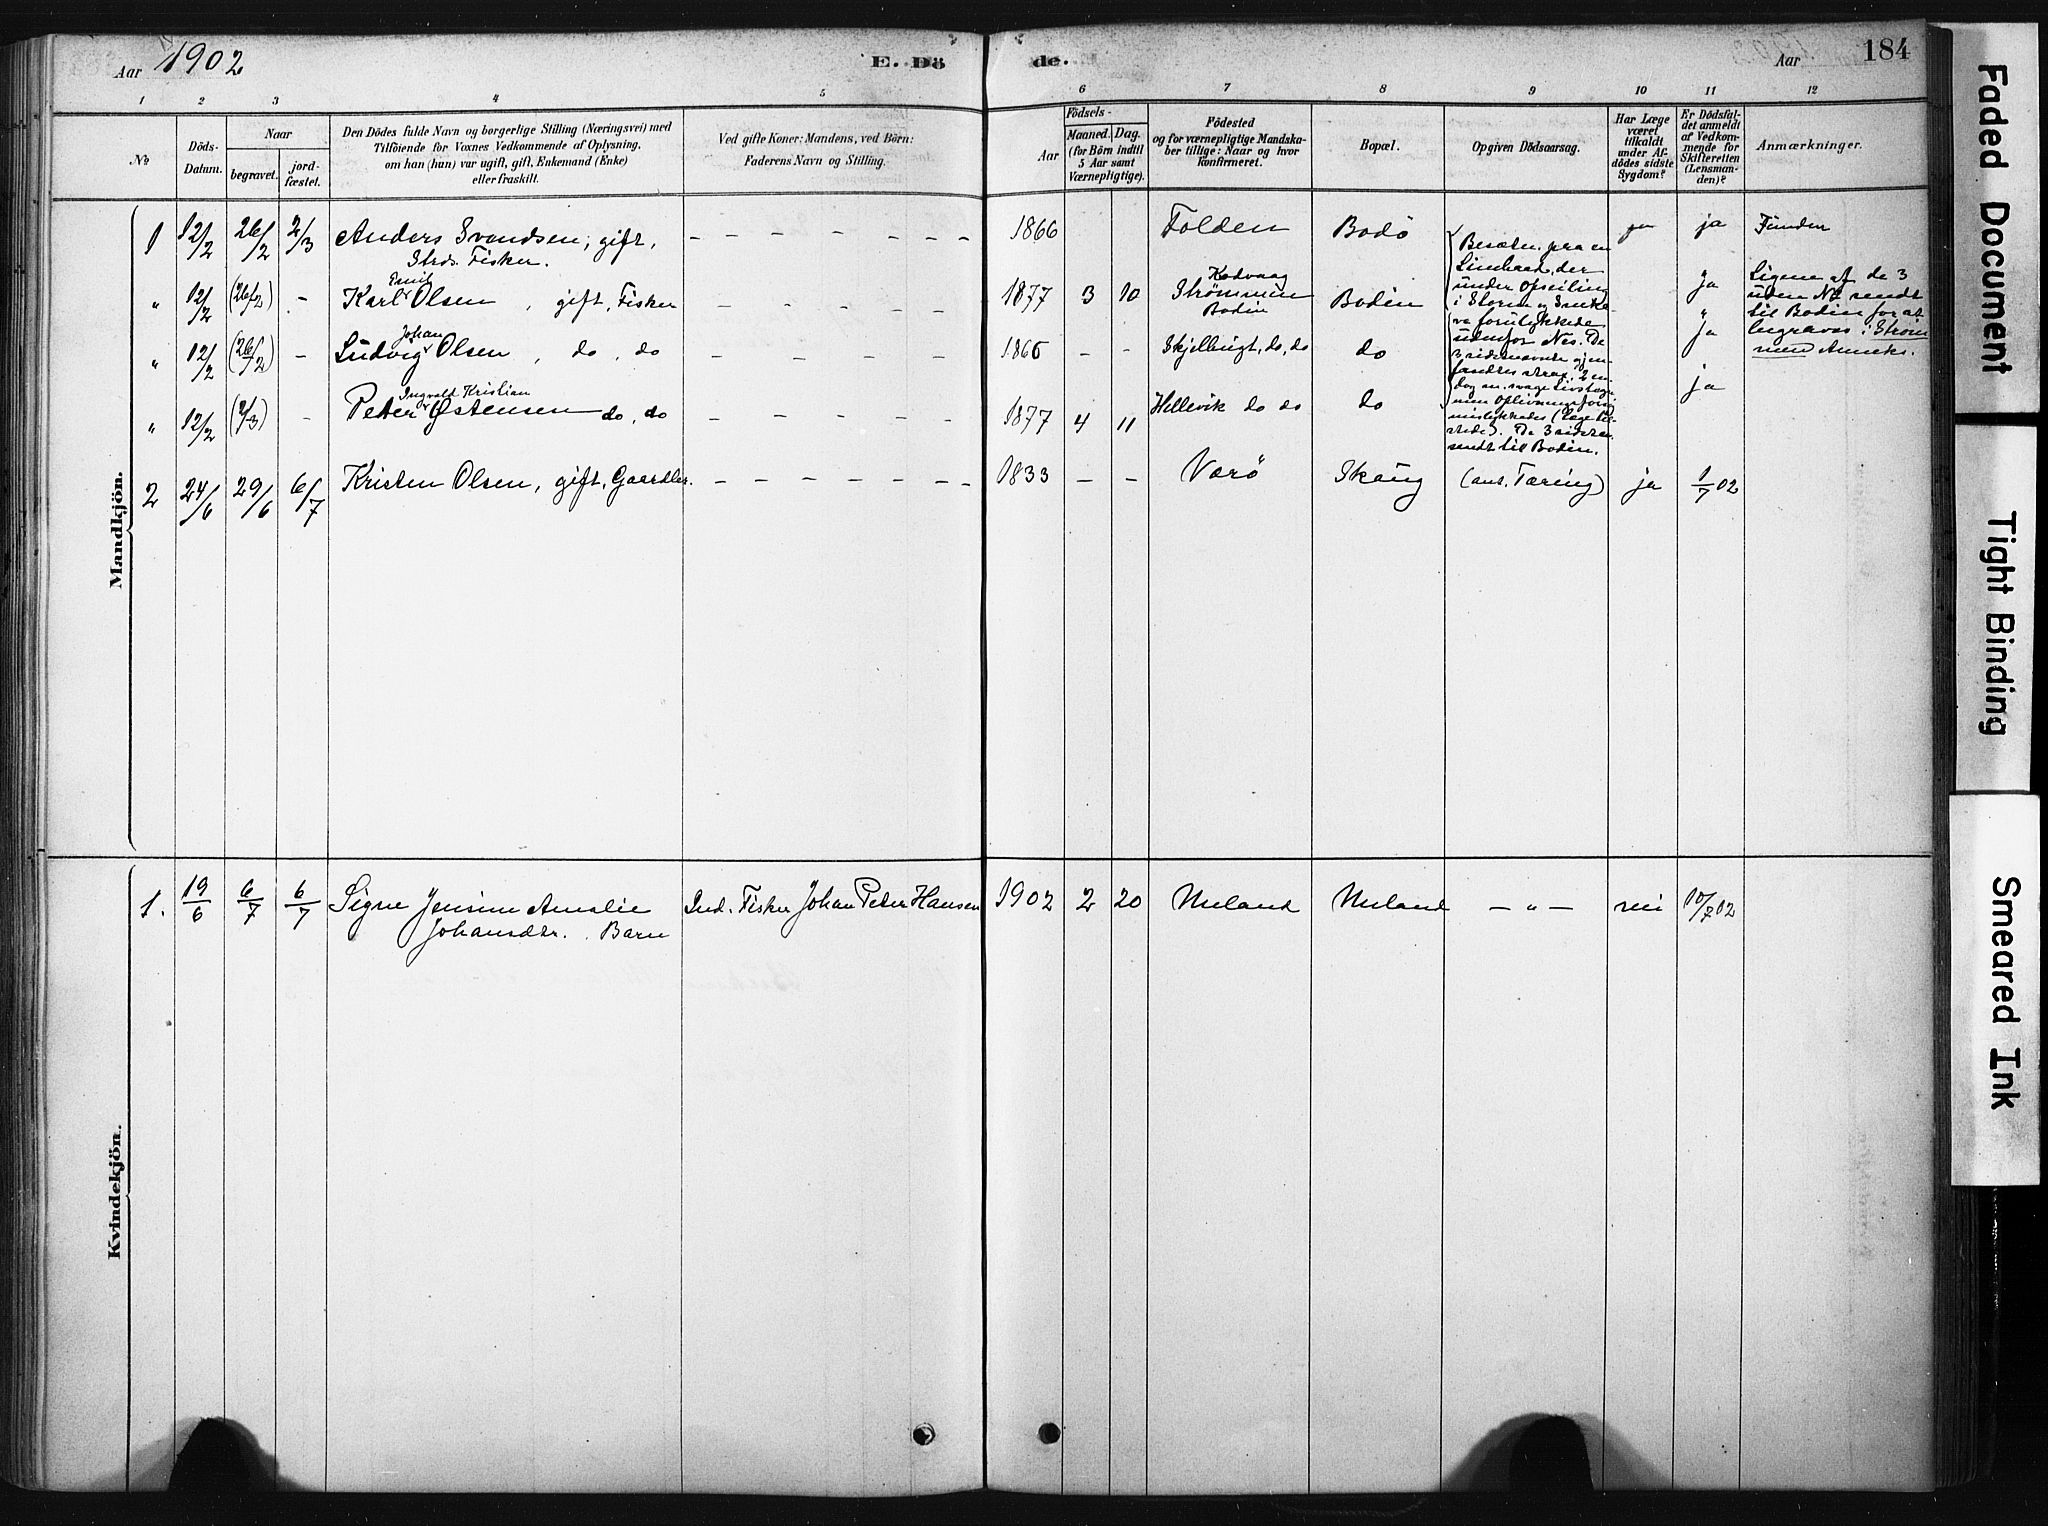 Aar 1902
E. Dö
de.
Aar
184
1 2 3 4 5 6 7 8 9 10 11 12
No
Döds-
Datum.
Naar
begravet.
jord-
fæstet.
Den Dödes fulde Navn og borgerlige Stilling (Næringsvei) med
Tilföiende for Voxnes Vedkommende af Oplysning,
om han (hun) var ugift, gift, Enkemand (Enke)
eller fraskilt.
Ved gifte Koner: Mandens, ved Börn:
Faderens Navn og Stilling.
Födsels-
Aar
Maaned. Dag.
(for Börn indtil
5 Aar samt
Værnepligtige).
Födested
og for værnepligtige Mandska-
ber tillige: Naar og hvor
konfirmeret.
Bopæl.
Opgiven Dödsaarsag.
Har Læge
været
tilkaldt
under Af-
dödes sidste
Sygdom?
Er Dödsfal-
det anmeldt
af Vedkom-
mende for
Skifteretten
(Lensman-
den)?
Anmærkninger.
Mandkjön.
1 12/2 26/2 2/3 Anders Svendsen, gift, - - - - - - - - 1866 Folden Bodö ja ja Funden
Strds. Fisker.
Emil
" 12/2 (26/2) - Karl Olsen, gift, Fisker - - - - - - 1877 3 10
Strømmen
Bodin
Bodin
ja
Johan
" 12/2 (26/2) - Ludvig Olsen, do, do - - - - - - 1866 - - do, do do ja
Ingvald Kristian
" 12/2 (2/3) - Peter Østensen do, do - - - - - 1877 4 11 Hellevik do do do ja
under Opseiling
forulykkede
udenfor Næs. De
sendt til Bodin.
Ligene af de 3
uden No sendt
til Bodin for at
begraves i Ström
men Anneks.
2 24/6 29/6 6/7 Kristen Olsen, gift, Gaardbr. - - - - - - - 1833 - - Værö Skaug (ant. Tæring) ja 1/7 02
Kvindekjön.
1. 19/6 6/7 6/7 Signe Jensine Amalie Ind. Fisker Johan Peter Hansen 1902 2 20 - " - nei 10/7 02
Johansdtr. Barn
Faded Document
Tight Binding
Smeared Ink